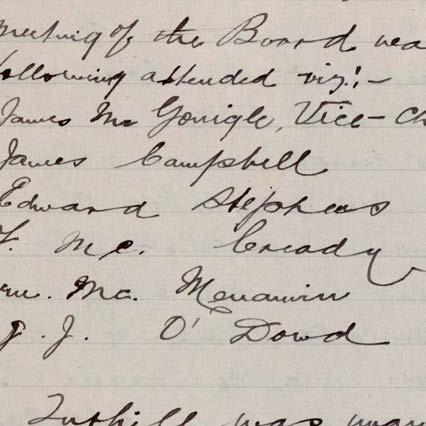 meeting of the Board was
following attended viz:-
James Mc Gonigle, Vice-Ch
James Campbell
Edward Stephens
Mc. Cready
Mc. Menamin
J. O'Dowd
Tuthill was